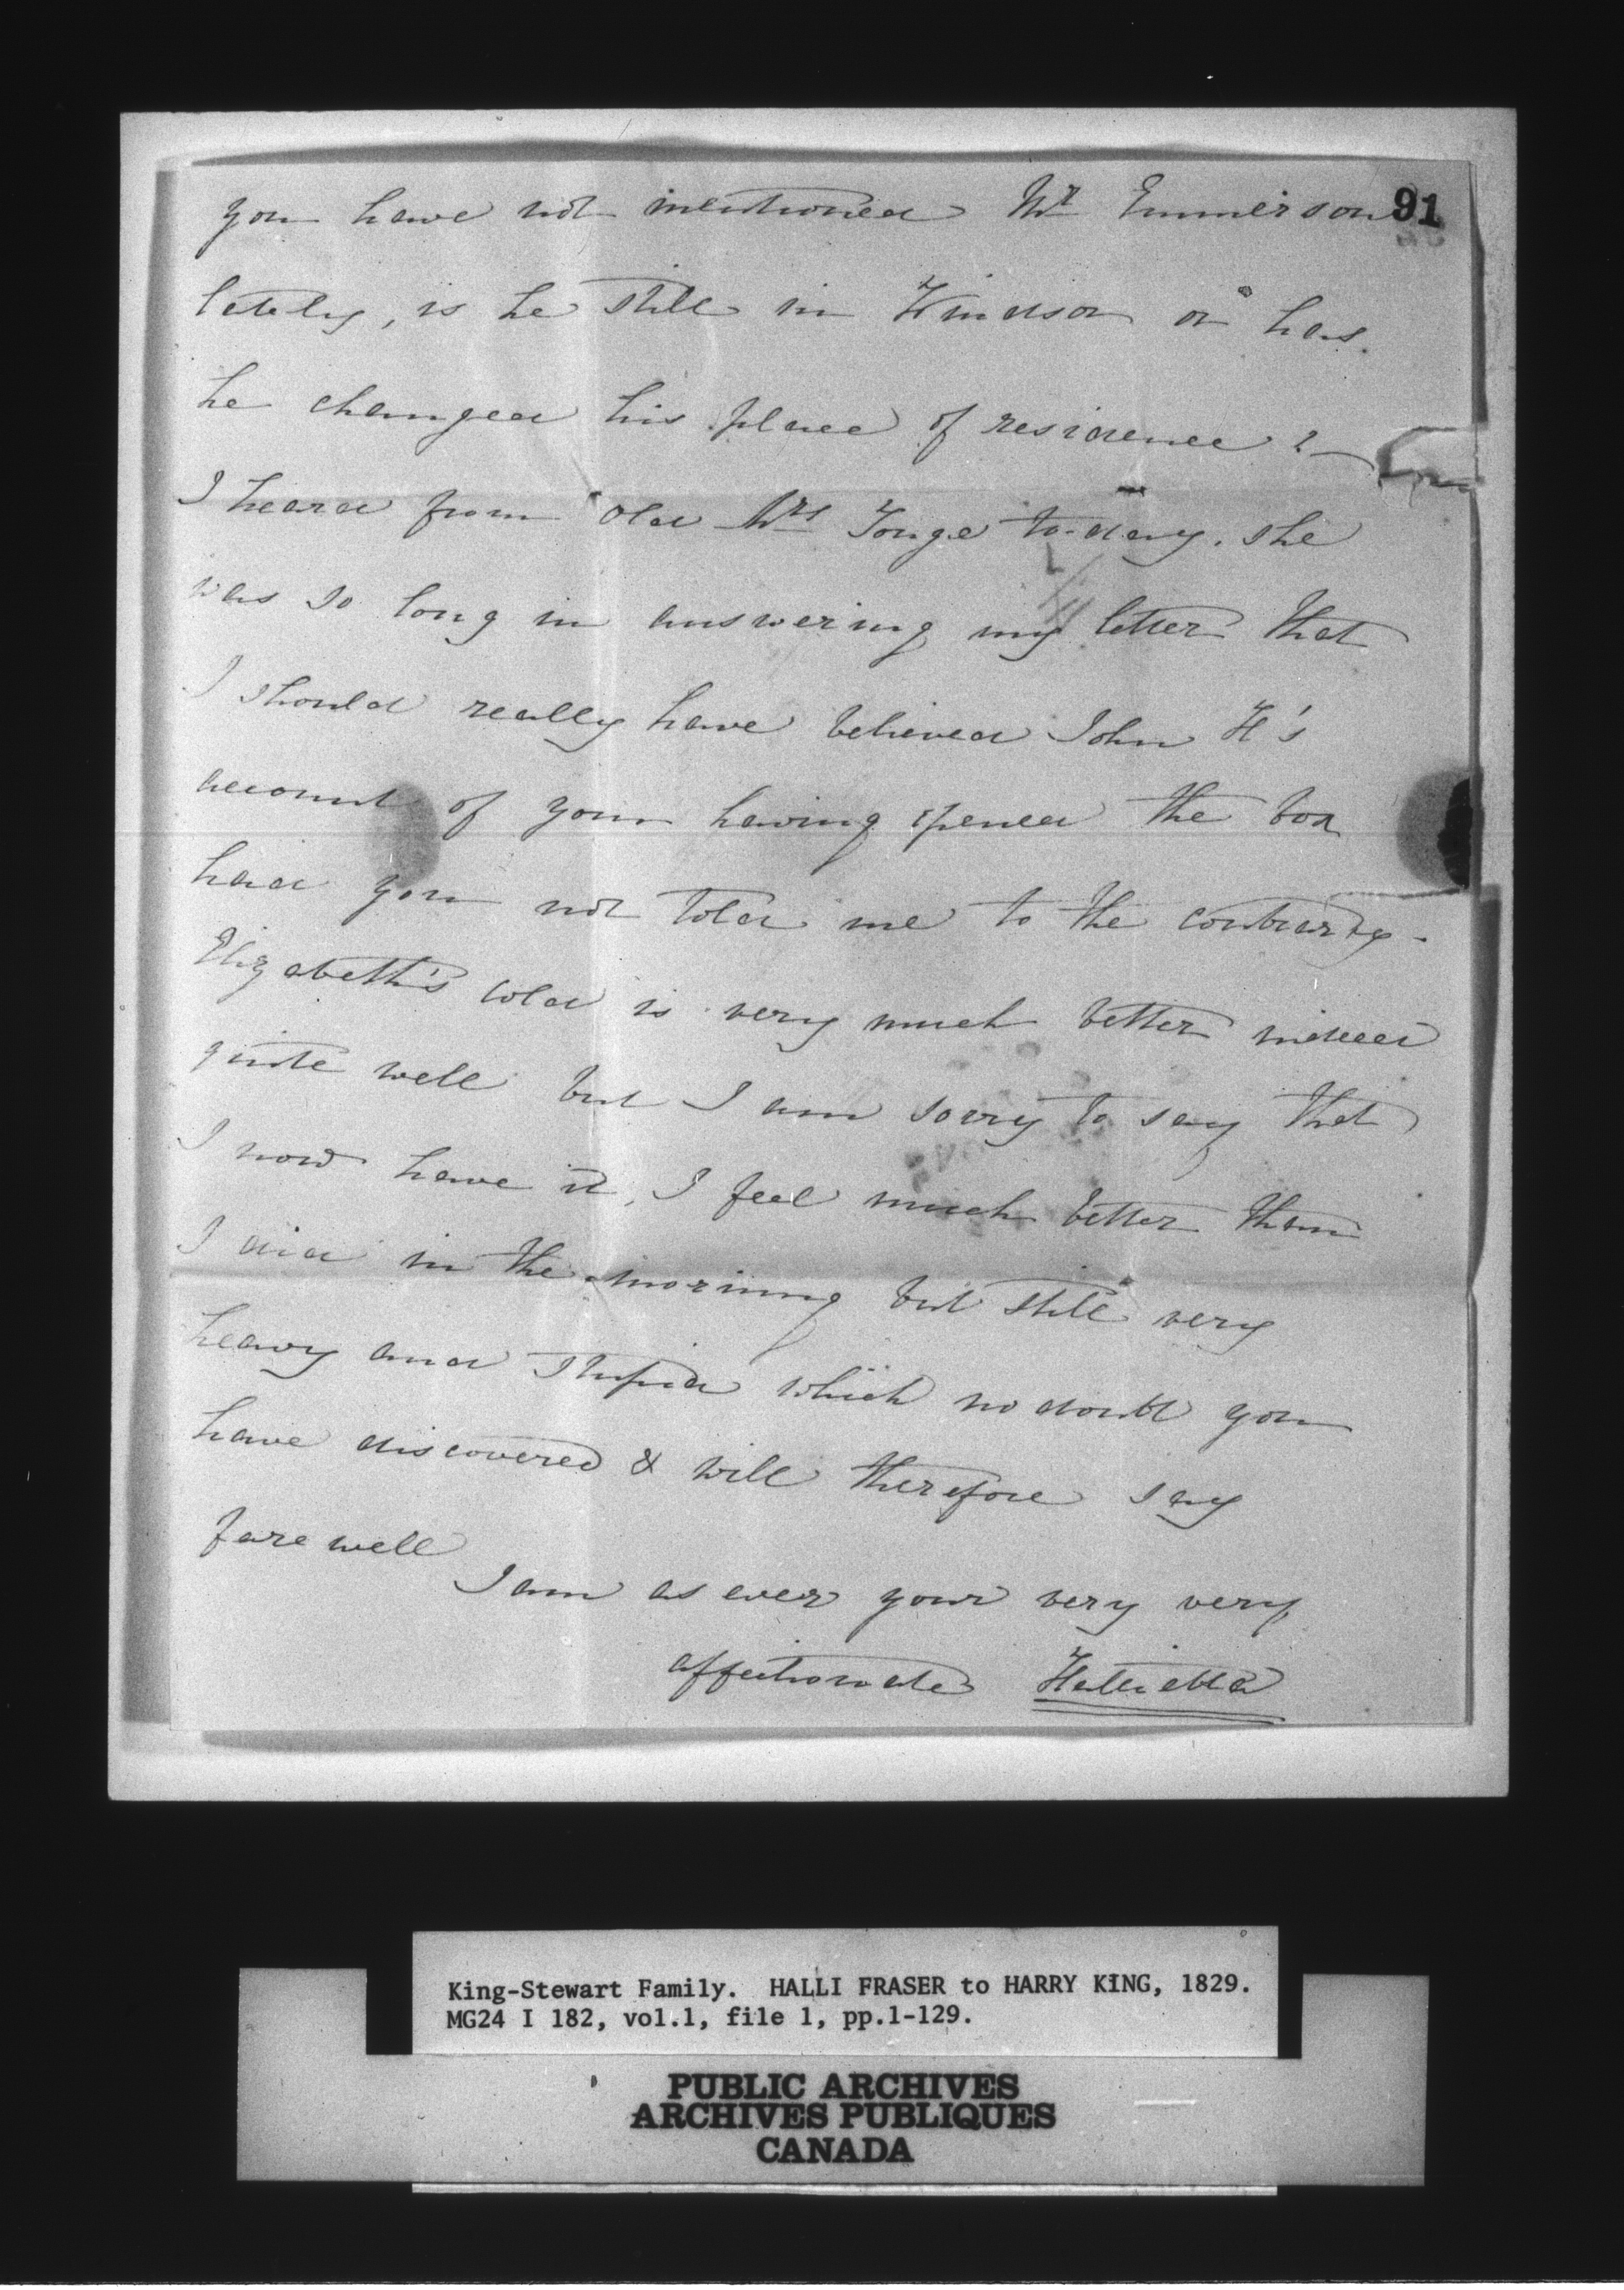 91
you have not mentioned Mr Emmerson
lately, is he still in Windsor or has
he changed his place of residence? —
I heard from old Mrs Tonge to-day. she
was so long in answering my letter that
I should really have believed John H's
account of your having opened the box
had you not told me to the contrary -
Elizabeth's cold is very much better indeed
quite well but I am sorry to say that
I now have it, I feel much better than
I did in the morning but still very
heavy and stupid which no doubt you
have discovered & will therefore say
farewell
I am as ever your very very
affectionate Hallietta
King-Stewart Family. HALLI FRASER to HARRY KING, 1829.
MG24 I 182, vol.1, file 1, pp.1-129.
PUBLIC ARCHIVES
ARCHIVES PUBLIQUES
CANADA